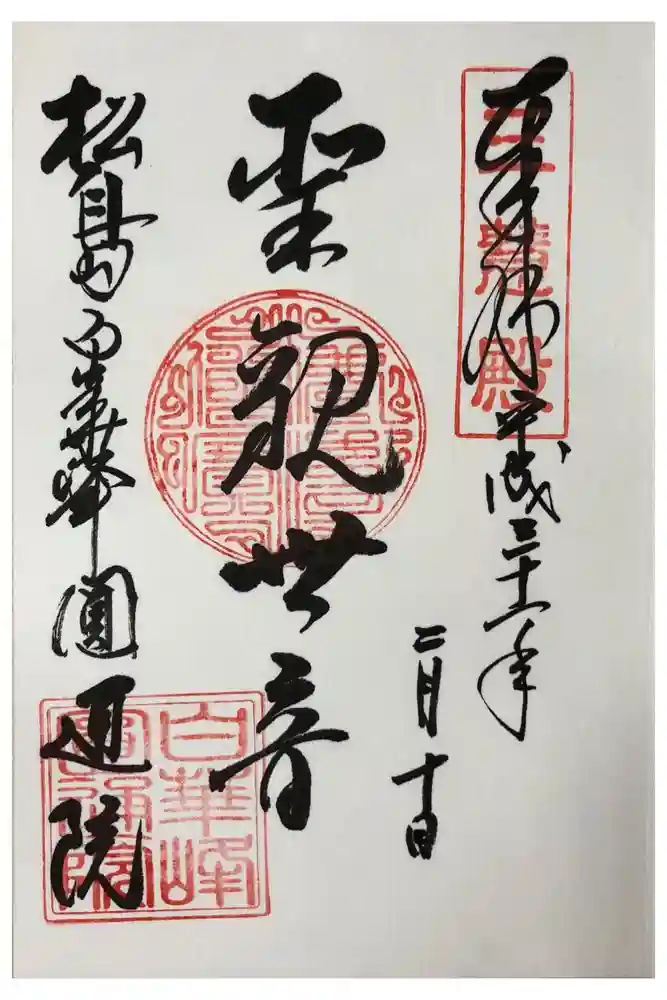 奉拝
三慧殿
平成三十一年
二月十日
聖観世音
松島白華峰圓通院
白華峰
圓通院